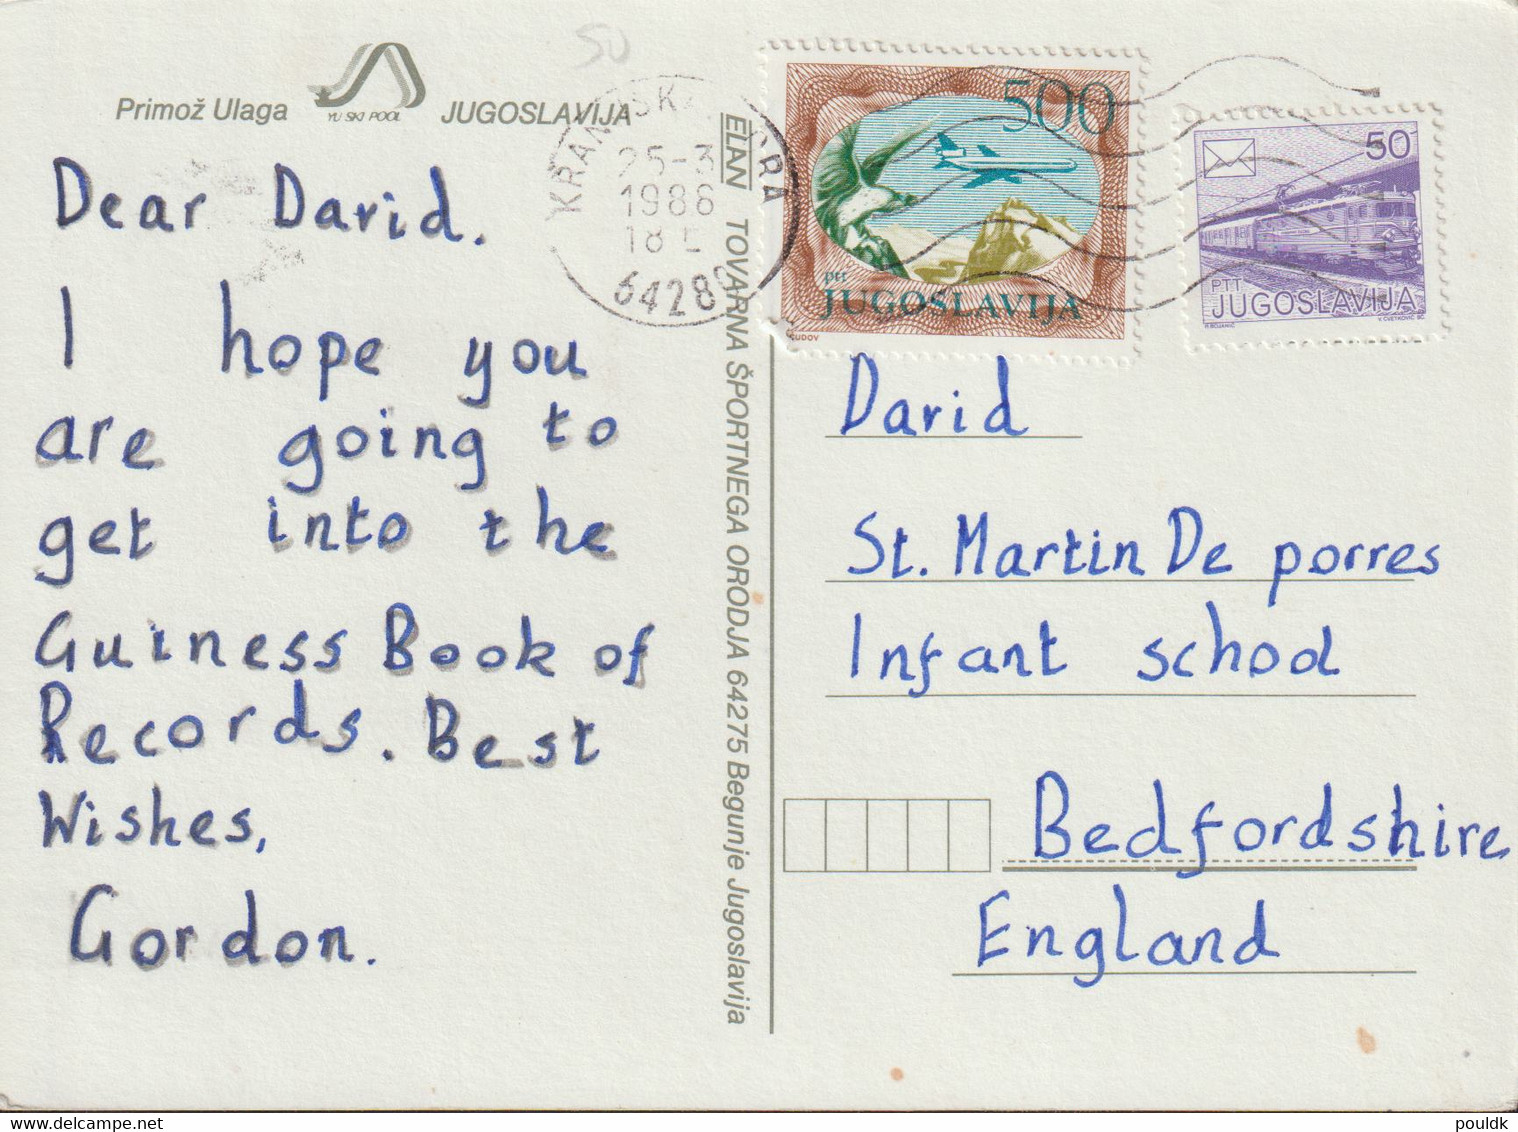 50
Primož Ulaga YU SKI POOL JUGOSLAVIJA
Dear David.
I hope you
are going to
get into the
Guiness Book of
Records. Best
Wishes,
Gordon.
25-3
1986
18
6428
ELAN TOVARNA ŠPORTNEGA ORODJA 64275 Begunje Jugoslavija
500
PTT
JUGOSLAVIJA
50
PTT
JUGOSLAVIJA
David
St. Martin De porres
Infant school
Bedfordshire
England
pouldk